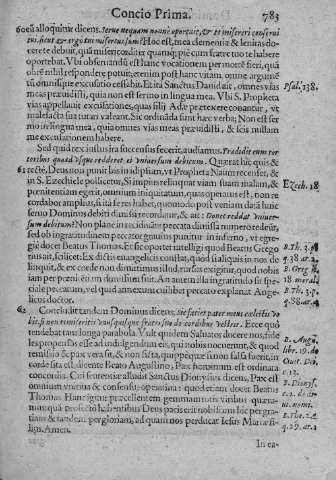 Concio Prima. 783
60 eū alloquitur dicens. serue nequam nonne oportuit, & te misereri conserui
tui, sicut & ego tui misertus sum? Hoc est, mea clementia & lenitas do-
cere te debuit, quā misericorditer quamq; piè cum fratre tuo te habere
oportebat. Vbi obseruandū est hanc vocationem personæ fieri, quā
obrē nihil respondere potuit; etenim post hanc vitam omne argumē
tū omnisque excusatio cessabit. Et ita Sanctus Dauid ait, omnes vias
meas præuidisti, quia non est sermo in lingua mea. Vbi S. Propheta
vias appellauit excusationes, quas filij Adæ prætexere conantur, vt
malefacta sua tutari valeant. Sic ordinanda sunt hæc verba; Non est ser
mo in lingua mea, quia omnes vias meas præuidisti, & scis nullam
me excusationem habere.
Psal. 138.
Sed quid rex iussu ira succensus fecerit, audiamus. Tradidit eum tor
toribus quod vsque redderet ei vniuersum debitum. Quærat hic quis &
61 rectè, Deus non punit bis in idipsum, vt Propheta Naum recenset, &
in S. Ezechiele pollicetur, Si impius relinquat viam suam malam, &
pœnitentiam egerit, omnium iniquitatum, quas operatus est, non re
cordabor amplius, si ita se res habet, quomodo post veniam datā huic
seruo Dominus debiti dimissi recordatur, & ait: Donec reddat vniuer-
sum debitum? Non planè in recidiuam peccata dimissa numero redeūt,
sed ob ingratitudinem peccator grauius punitur in inferno, vt egre-
giè docet Beatus Thomas. Et sic oportet intelligi quod Beatus Grego
rius ait, scilicet: Ex dictis euangelicis constat, quod si aliquis in nos de
linquit, & ex corde non dimittimus illud, rursus exigitur, quod nobis
iam per pœnitentiam dimissum fuit. An autem illa ingratitudo sit spe-
ciale peccatum, vel quod annexum cuilibet peccato explanat Ange-
licus doctor.
Ezech. 18
B. Th. 3. p.
q. 88. ar. 2.
B. Greg. li.
18 moral.
B. Th. 3. p.
q. 88. ar. 4
62 Concludit tandem Dominus dicens, sic faciet pater meus cœlestis vo
bis, si non remiseritis vnusquisque fratri suo de cordibus vestris. Ecce quò
tendebat tam longa parabola. Vult quidem Saluator docere nos, faci-
les propensosq́; esse ad indulgendum eis, qui nobis nocuerunt, & quod
remissio & pax vera sit, & non ficta, quippe quæ si non falsa fuerit, in
corde sita est, dicente Beato Augustino, Pax hominum est ordinata
concordia. Cui sententiæ alludit Sanctus Dionysius dicens, Pax est
omnium vnitiua & consensus operatiua: quod etiam docet Beatus
Thomas. Hanc igitur præcellentem gemmam totis viribus quæra-
mus, quā profectò habentibus Deus pacis erit nobiscum hic per gra-
tiam & tandem per gloriam, ad quam nos perducat Iesus Mariæ fi-
lius. Amen.
B. Aug.
libr. 19. de
Ciuit. Dei,
c. 12.
B. Dionys.
c. 2. de di-
ui. nomi.
B. Tho. 2. 2
q. 29. ar. 1
In ea-